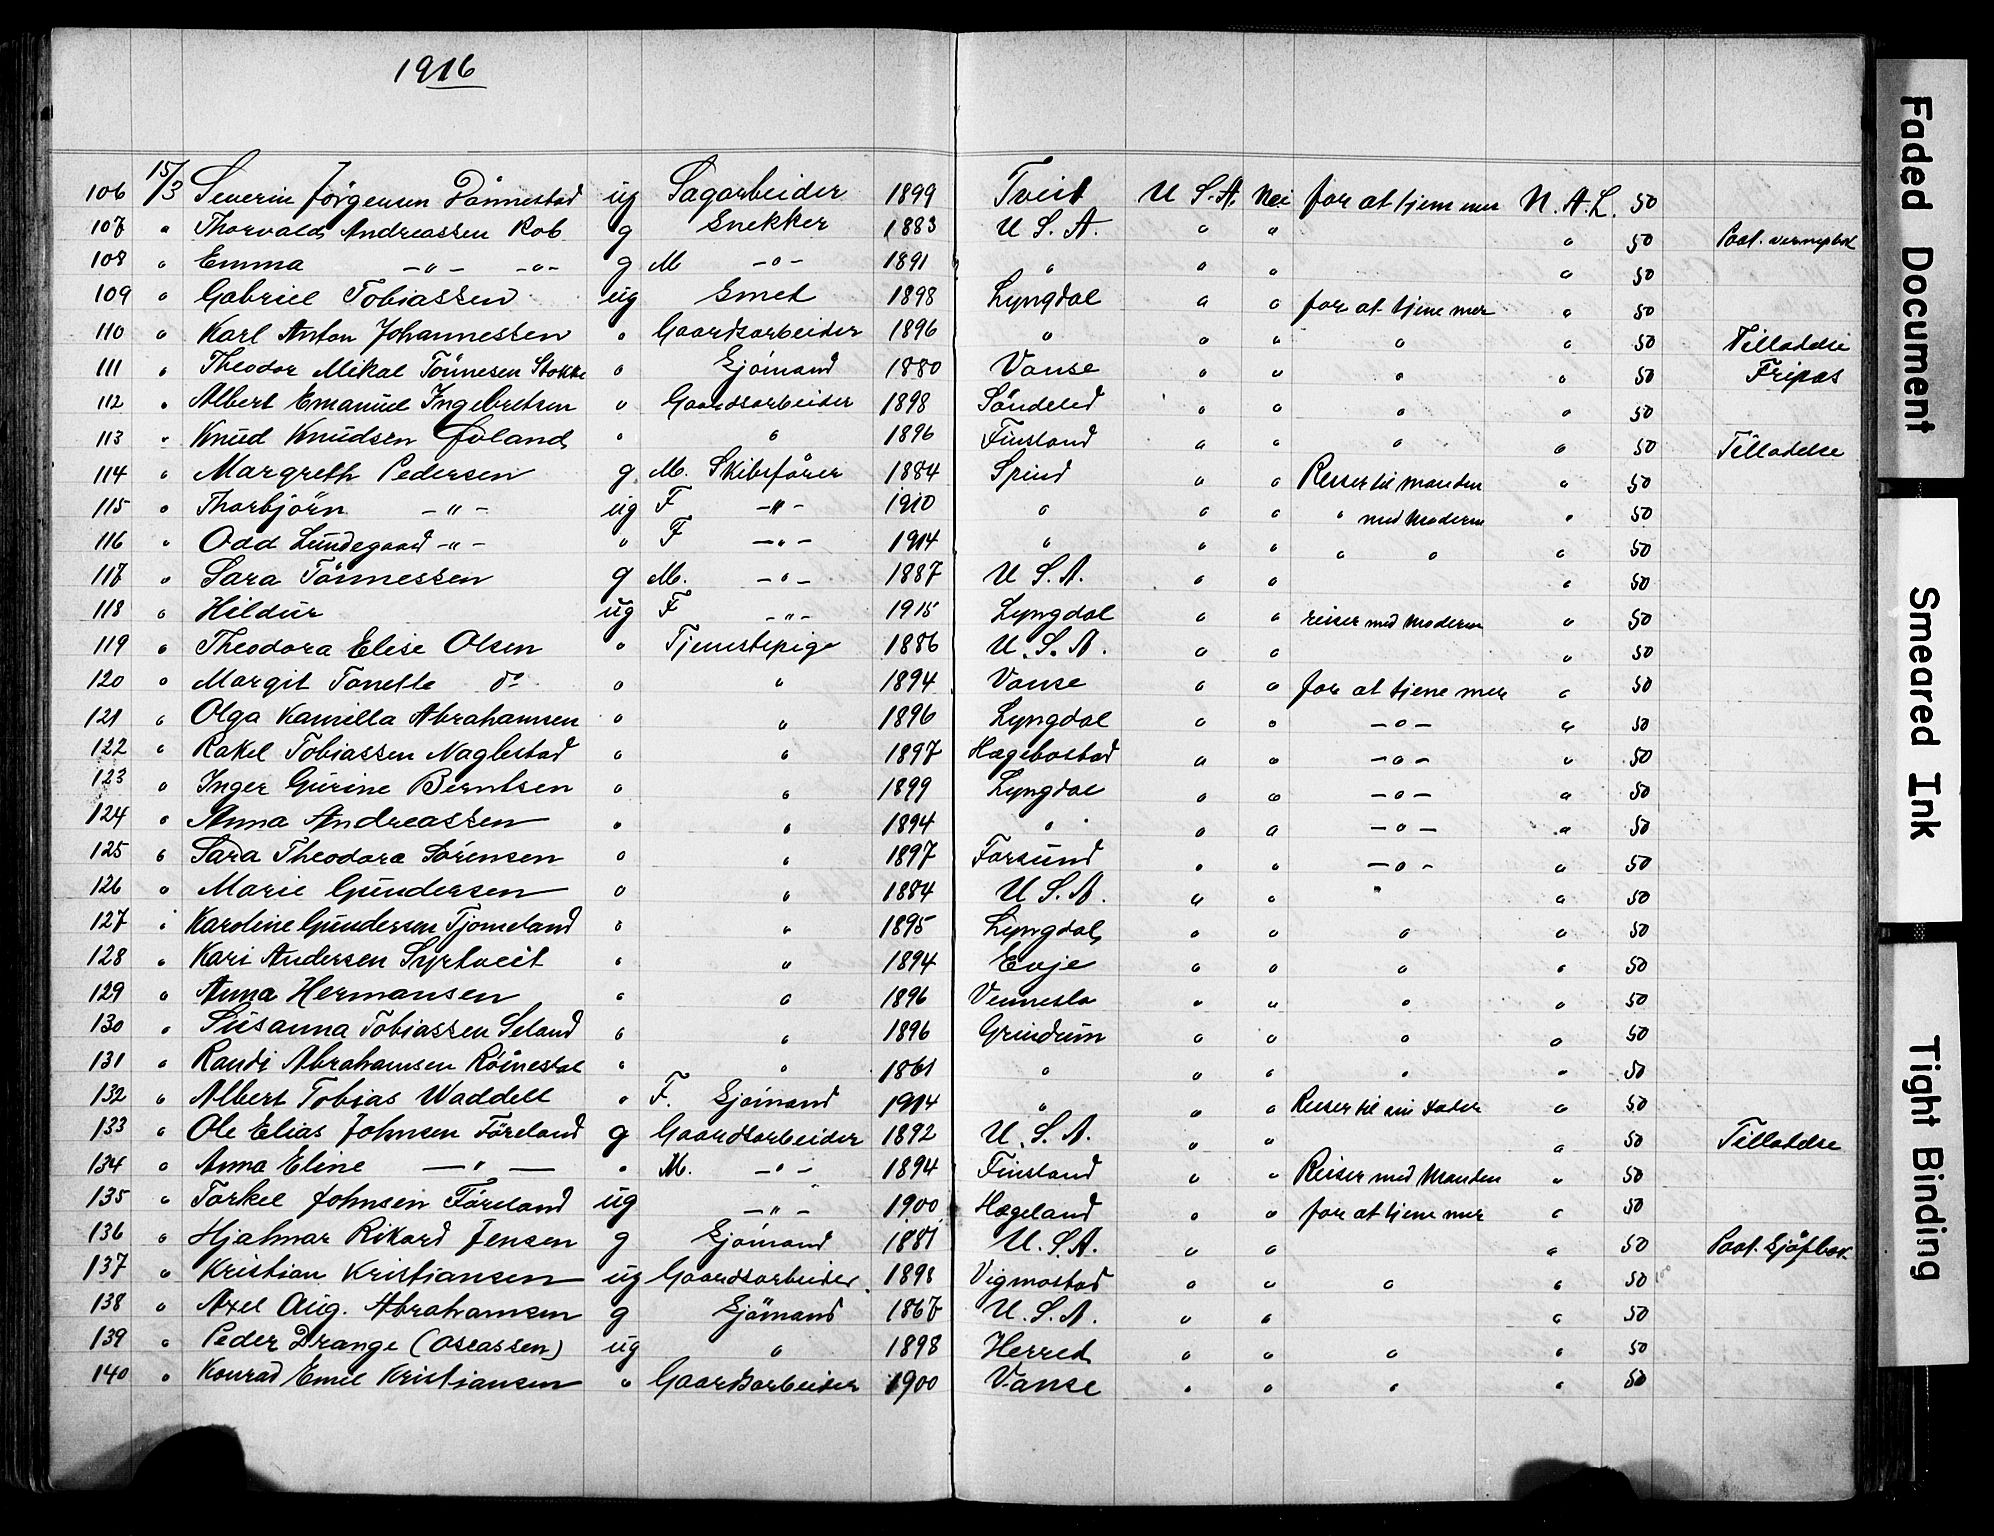 1916
106 15/3 Severin Jörgensen Dönnestad ug Sagarbeider 1899 Tveit U S. A. Nei for at tjene mer N. A. L. 50
107 " Thorvald Andreassen Rob g Snekker 1883 U. S. A. " " " 50
108 " Emma -"- -"- g M -"- 1891 " " " " 50
109 " Gabriel Tobiassen ug Smed 1898 Lyngdal " " for at tjene mer " 50
110 " Karl Anton Johannessen " Gaardsarbeider 1896 " " " " " 50 Tilladelse
111 " Theodor Mikal Tönnesen Stokke " Sjömand 1880 Vanse " " " " 50 Fripas
112 " Albert Emanuel Ingebretsen " Gaardsarbeider 1898 Söndeled " " " " 50
113 " Knud Knudsen Øvland " " 1896 Finsland " " " " 50 Tilladelse
114 " Margreth Pedersen g M. Skibsfører 1884 Spind " " Reiser til manden " 50
115 " Thorbjörn -"- ug F -"- 1910 " " " " med Modern " 50
116 " Odd Lundegaard -"- " F -"- 1914 " " " " " " 50
117 " Sara Tönnessen g M. -"- 1887 U S. A. " " " 50
118 " Hildur ug F -"- 1915 Lyngdal " " reiser med Modern " 50
119 " Theodora Elise Olsen " Tjenestepige 1886 U. S. A. " " " 50
120 " Margit Tonette do " " 1894 Vanse " " for at tjene mer " 50
121 " Olga Kamilla Abrahamsen " " 1896 Lyngdal " " -"- " 50
122 " Rakel Tobiassen Naglestad " " 1897 Hægebostad " " -"- " 50
123 " Inger Gurine Berntsen " " 1899 Lyngdal " " -"- " 50
124 " Anna Andreassen " " 1894 " " " -"- " 50
125 " Sara Theodora Sörensen " " 1897 Farsund " " -"- " 50
126 " Marie Gundersen " " 1884 U. S. A. " " " " 50
127 " Karoline Gundersen Tjomeland " " 1895 Lyngdal " " " " 50
128 " Kari Andersen Syrtveit " " 1894 Evje " " " " 50
129 " Anna Hermansen " " 1896 Vennesla " " " " 50
130 " Susanna Tobiassen Seland " " 1896 Grindum " " " " 50
131 " Randi Abrahamsen Röinestal " " 1861 " " " " " 50
132 " Albert Tobias Waddell " F. Sjömand 1914 " " " Reiser til sin Fader " 50
133 " Ole Elias Johnsen Föreland g Gaardsarbeider 1892 U. S. A. " " " 50 Tilladelse
134 " Anna Eline -"- " M. -"- 1894 Finsland " " Reiser med Manden " 50
135 " Torkel Johnsen Föreland ug -"- 1900 Hægeland " " for at tjene mer " 50
136 " Hjalmar Rikard Jensen g Sjömand 1881 U. S. A. " " " 50
137 " Kristian Kristiansen ug Gaardsarbeider 1898 Vigmostad " " " " 50 100
138 " Axel Aug. Abrahamsen g Sjömand 1867 U. S. A. " " " 50
139 " Peder Drange (Oseassen) ug " 1898 Herred " " " " 50
140 " Konrad Emil Kristiansen " Gaardsarbeider 1900 Vanse " " " " 50
Faded Document
Smeared Ink
Tight Binding